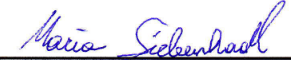 Maria Siebenhandl